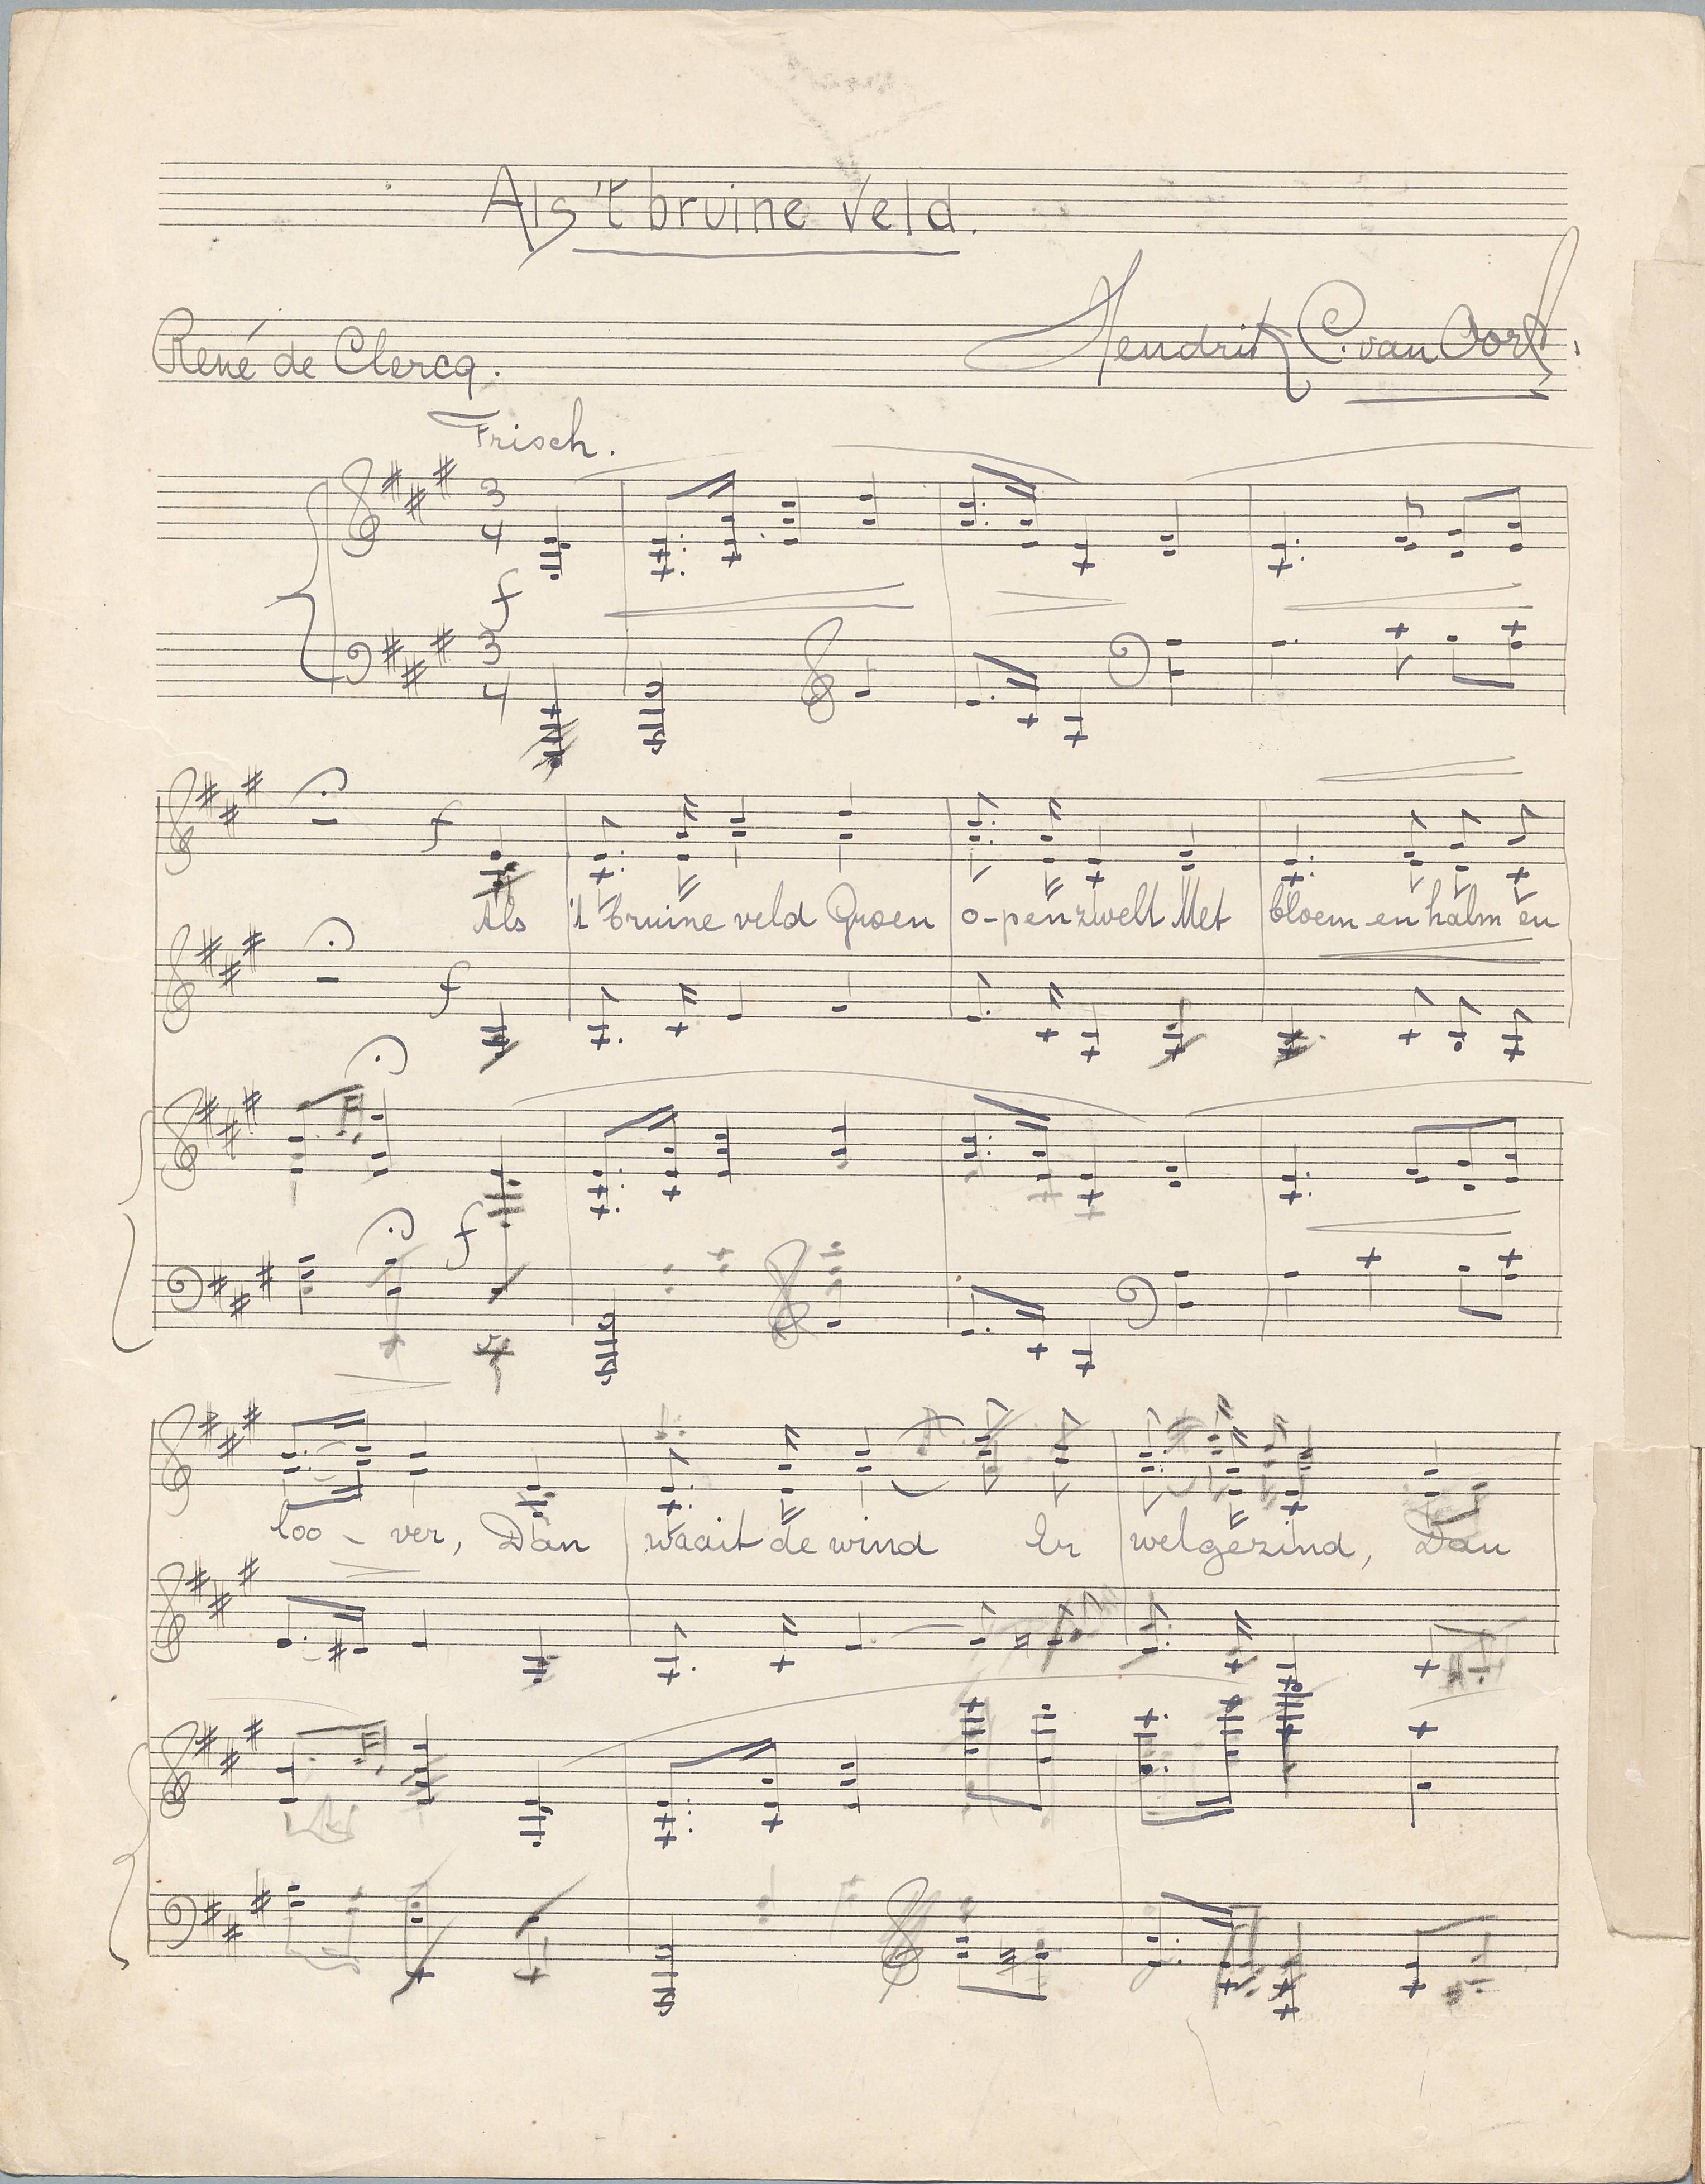 Als 't bruine veld.
René de Clercq.
Hendrik C. van Oort.
Frisch.
3
4
f
3
4
f
Als 't bruine veld Groen o-penzwelt Met bloem en halm en
f
f
loo - ver, Dan waait de wind Er welgezind, Dan